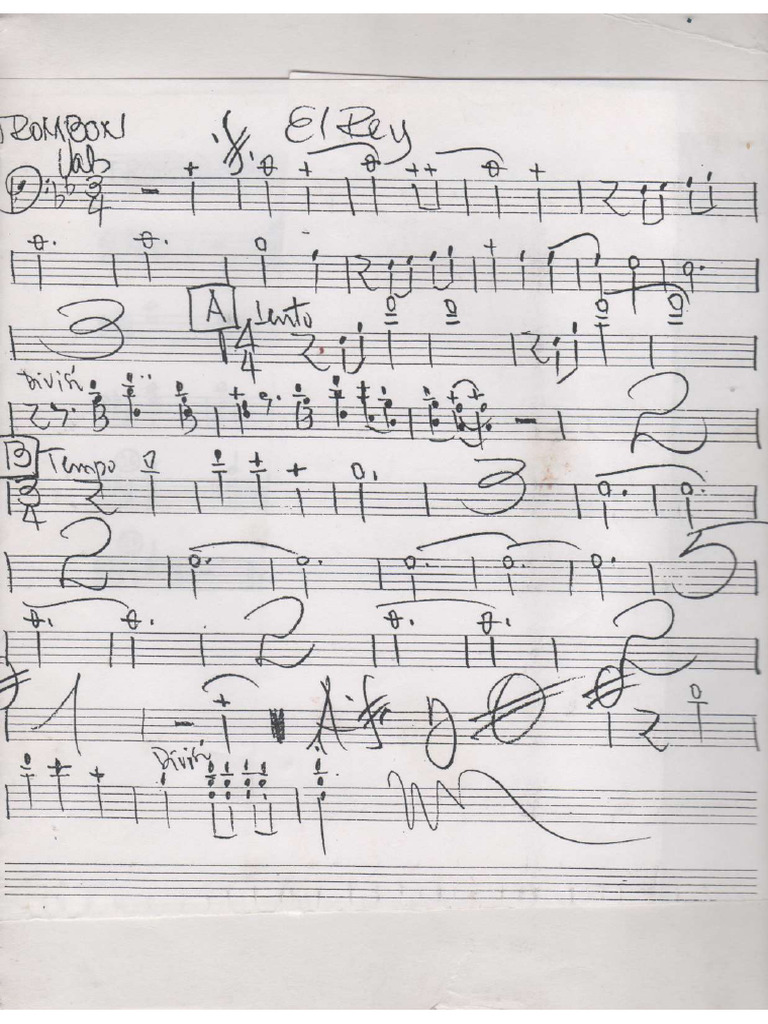 TROMBON
El Rey
Vals
3
4
3
A Lento
4
4
Divisi
2
B Tempo
3
4
3
2
5
2
2
1
Al
Divisi